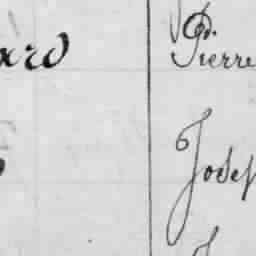 ard Pierre
Josep